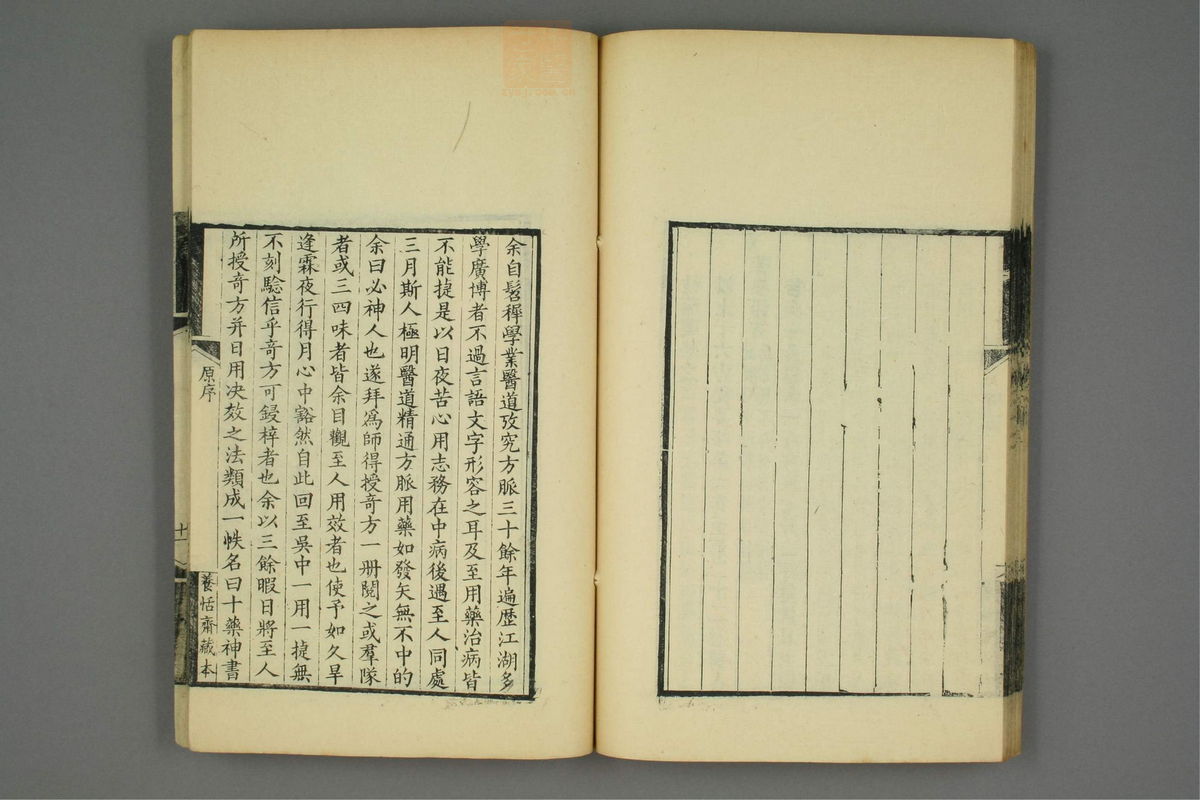 余自髫穉學業醫道攷究方脈三十餘年遍歷江湖多
學廣博者不過言語文字形容之耳及至用藥治病皆
不能捷是以日夜苦心用志務在中病後遇至人同處
三月斯人極明醫道精通方脈用藥如發矢無不中的
余曰必神人也遂拜爲師得授竒方一册閱之或羣隊
者或三四味者皆余目觀至人用效者也使予如久旱
逢霖夜行得月心中豁然自此回至吳中一用一捷無
不刻驗信乎竒方可鋟梓者也余以三餘暇日將至人
所授竒方并日用决效之法類成一帙名曰十藥神書
原序
十一
養恬齋藏本